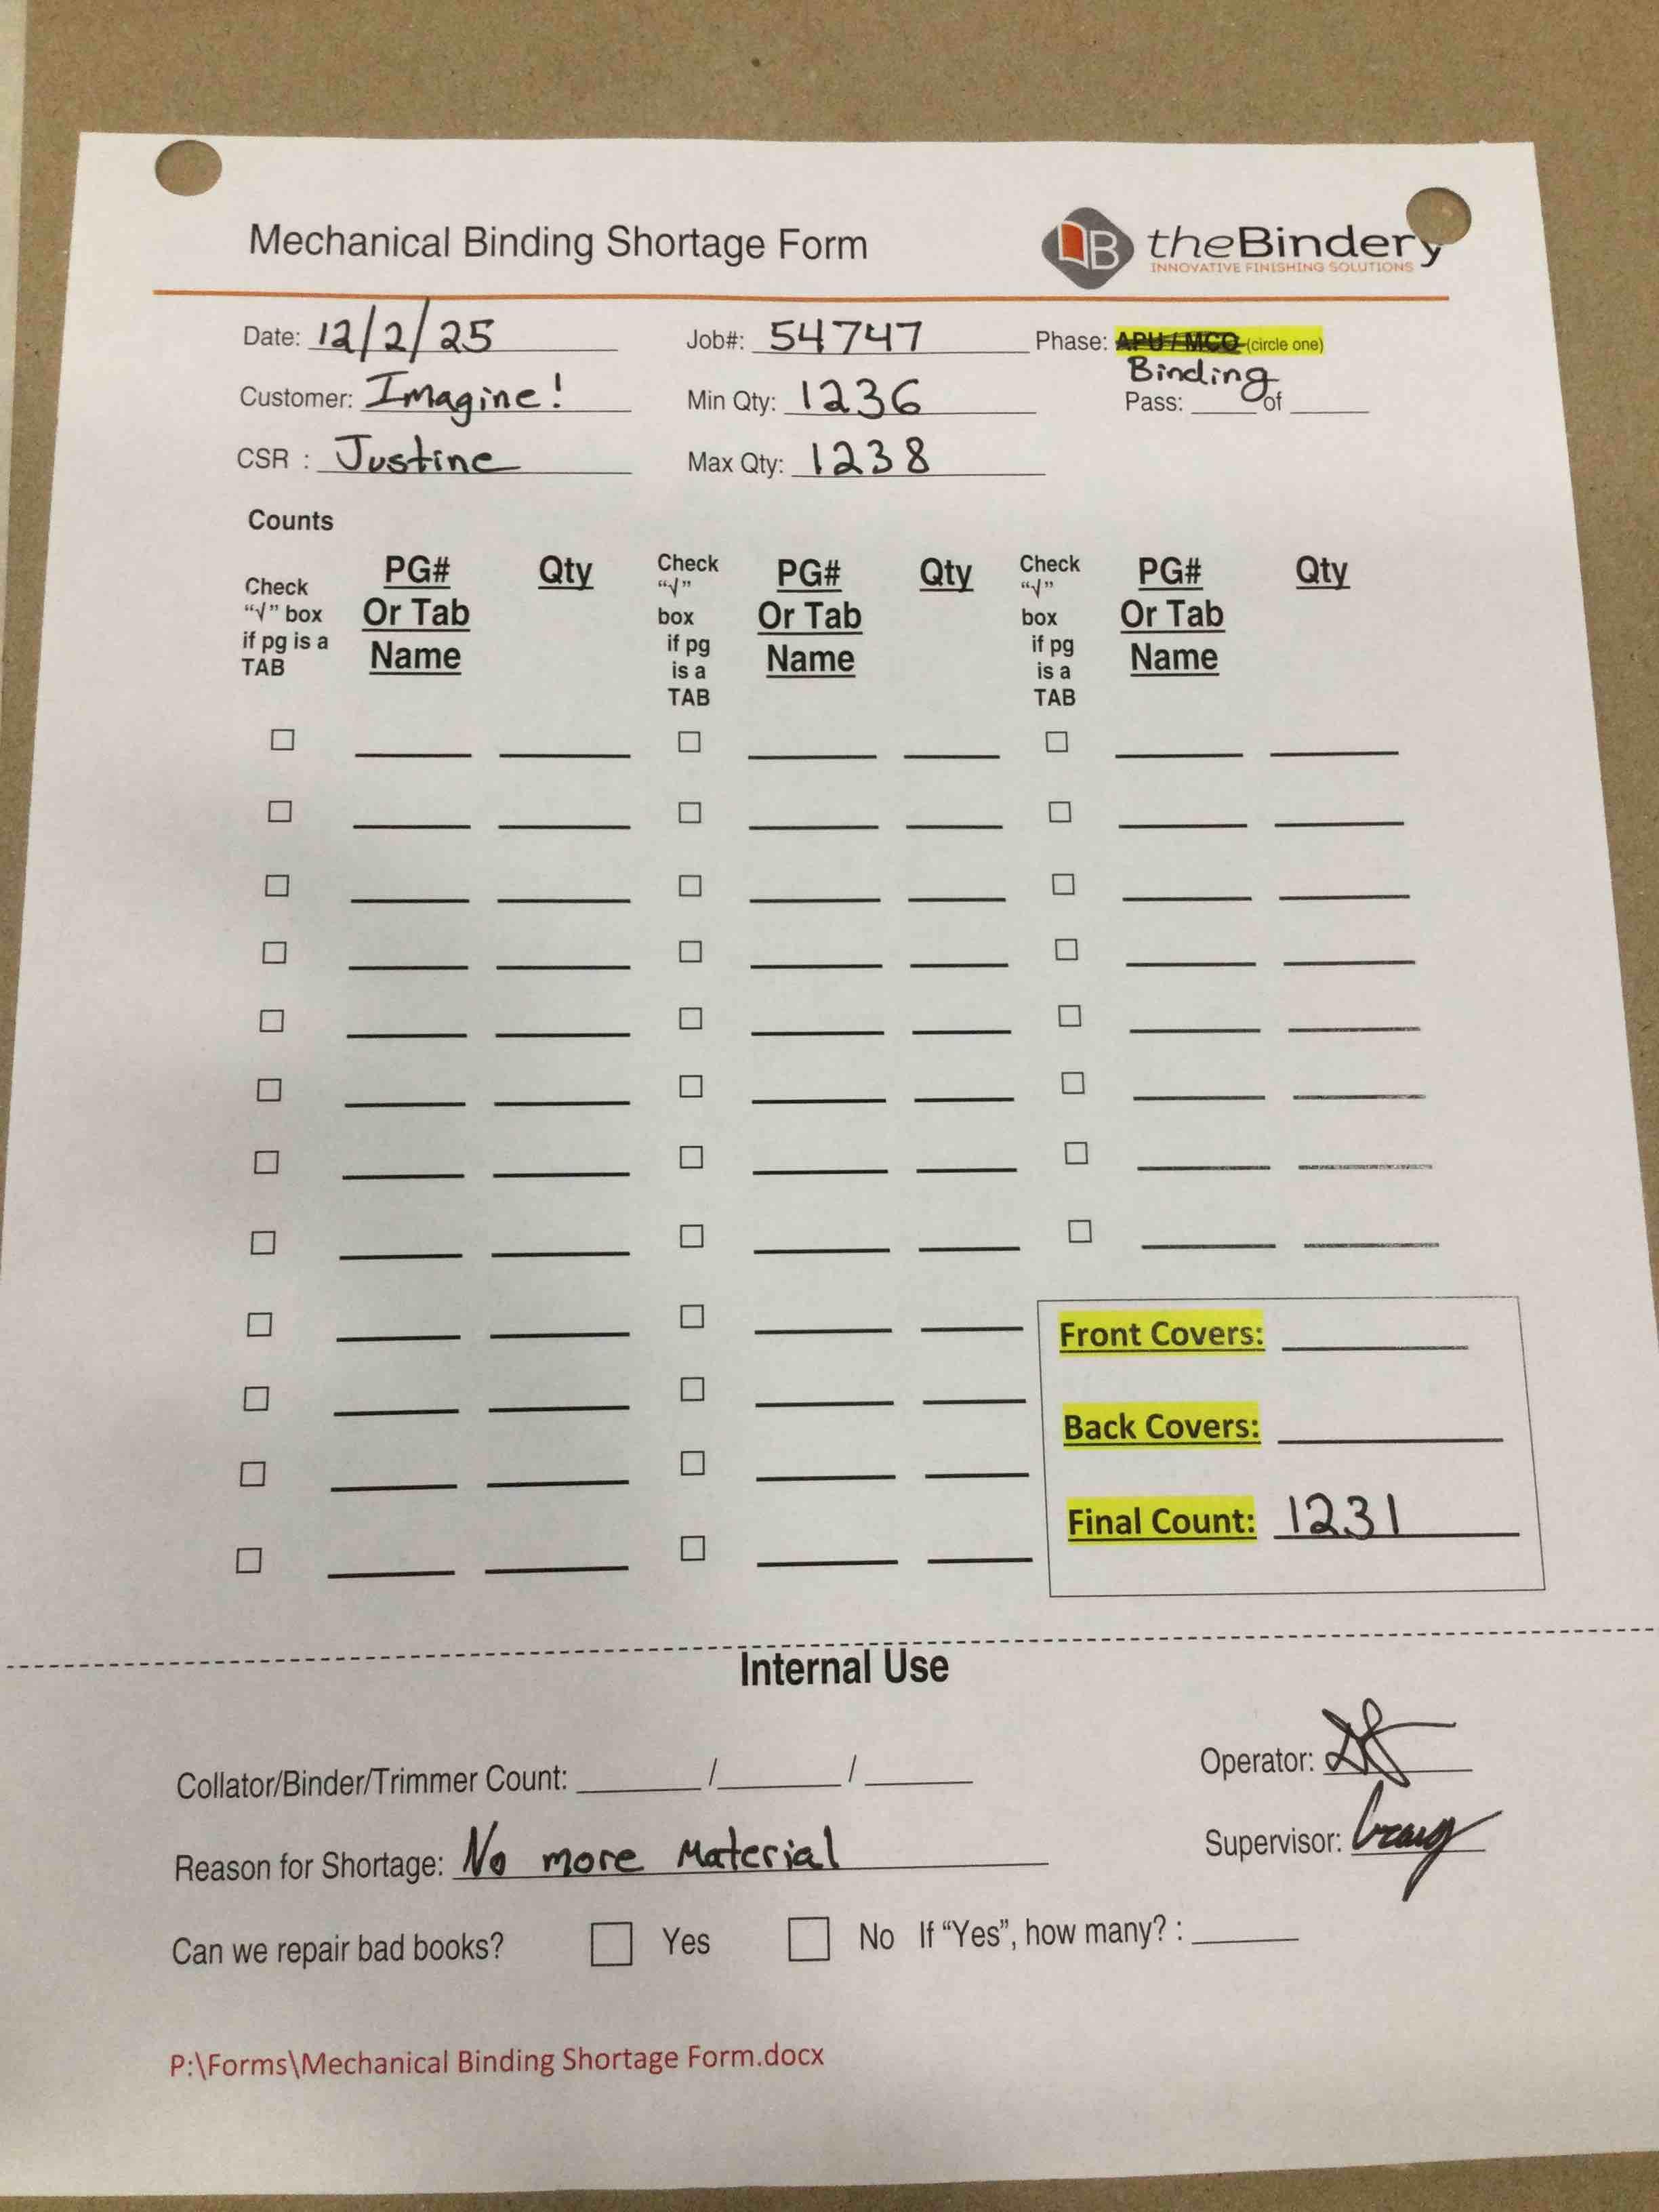 Mechanical Binding Shortage Form
B theBindery
INNOVATIVE FINISHING SOLUTIONS
Date: 12/2/25 Job#: 54747 Phase: APU / MCO (circle one)
Binding
Customer: Imagine! Min Qty: 1236 Pass: ____ of ____
CSR : Justine Max Qty: 1238
Counts
Check "√" box if pg is a TAB PG# Or Tab Name Qty Check "√" box if pg is a TAB PG# Or Tab Name Qty Check "√" box if pg is a TAB PG# Or Tab Name Qty
Front Covers:
Back Covers:
Final Count: 1231
Internal Use
Collator/Binder/Trimmer Count: ____/____/____
Operator:
Reason for Shortage: No more Material
Supervisor: Craig
Can we repair bad books? ☐ Yes ☐ No If "Yes", how many? : ____
P:\Forms\Mechanical Binding Shortage Form.docx